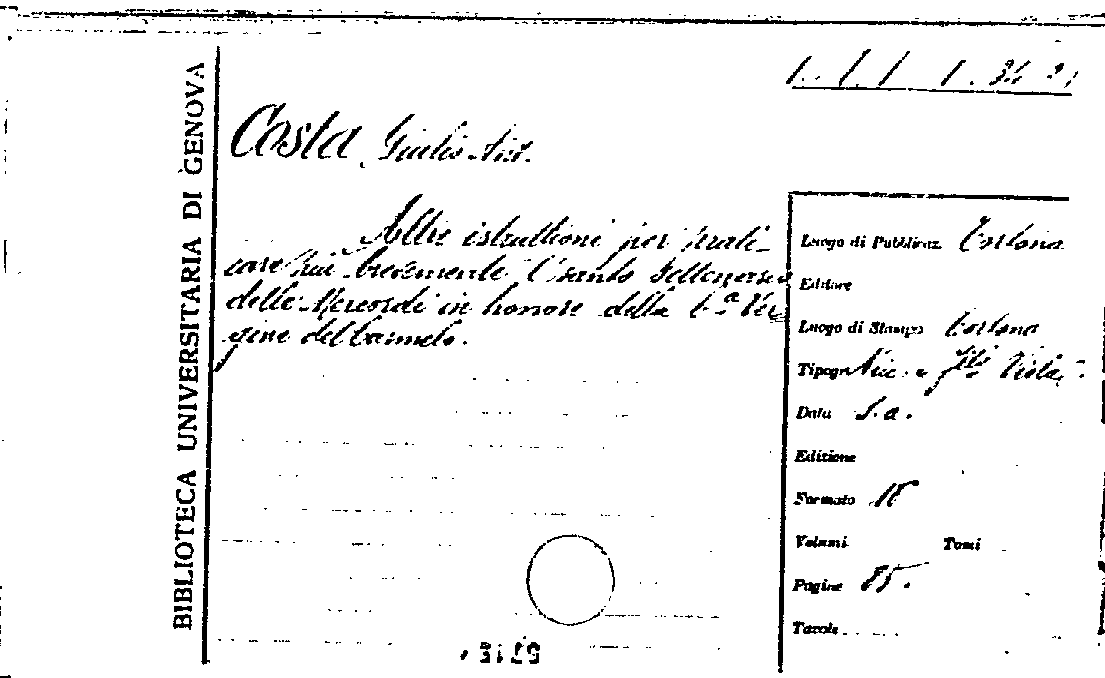 BIBLIOTECA UNIVERSITARIA DI GENOVA
Costa Giulio Ant.
Altre istruttioni per prati-
care più brevemente l'santo Settenario
delle Mercordi in honore della b.a Ver
gine del Carmelo.
Luogo di Pubblicaz. Tortona
Editore
Luogo di Stampa Tortona
Tipogr. Nic. e f.lli Viola
Data S.a.
Edizione
Formato 16
Volumi Tomi
Pagine 85.
Tavole